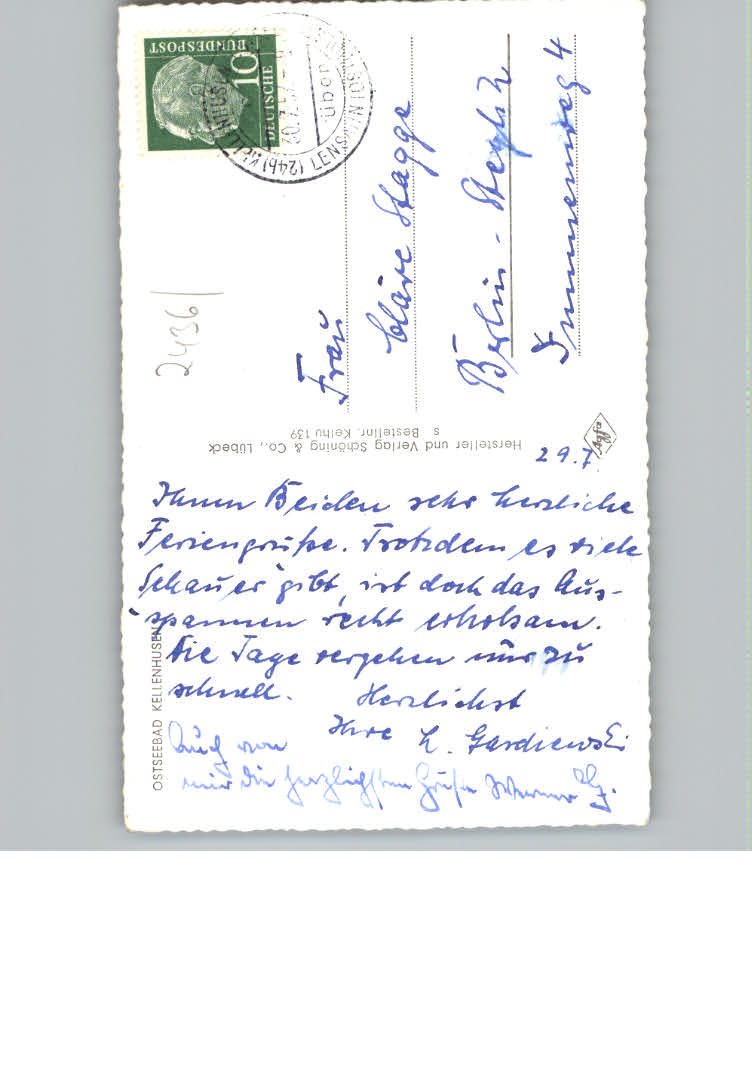 29.7.
Ihnen Beiden sehr herzliche
Feriengrüße. Trotzdem es viele
Schauer gibt, ist doch das Aus-
spannen recht erholsam.
Die Tage vergehen nur zu
schnell. Herzlichst
Ihre L. Gardiewski
Auch von
mir die herzlichsten Grüße Werner
Frau
Cläre Stagge
Berlin-Steglitz
Immenweg 4
DEUTSCHE
BUNDESPOST
10
(24b) KELLENHUSEN
über
LENSAHN
2436
Hersteller und Verlag Schöning & Co., Lübeck
s Bestellnr. Kelhu 139
Agfa
OSTSEEBAD KELLENHUSEN